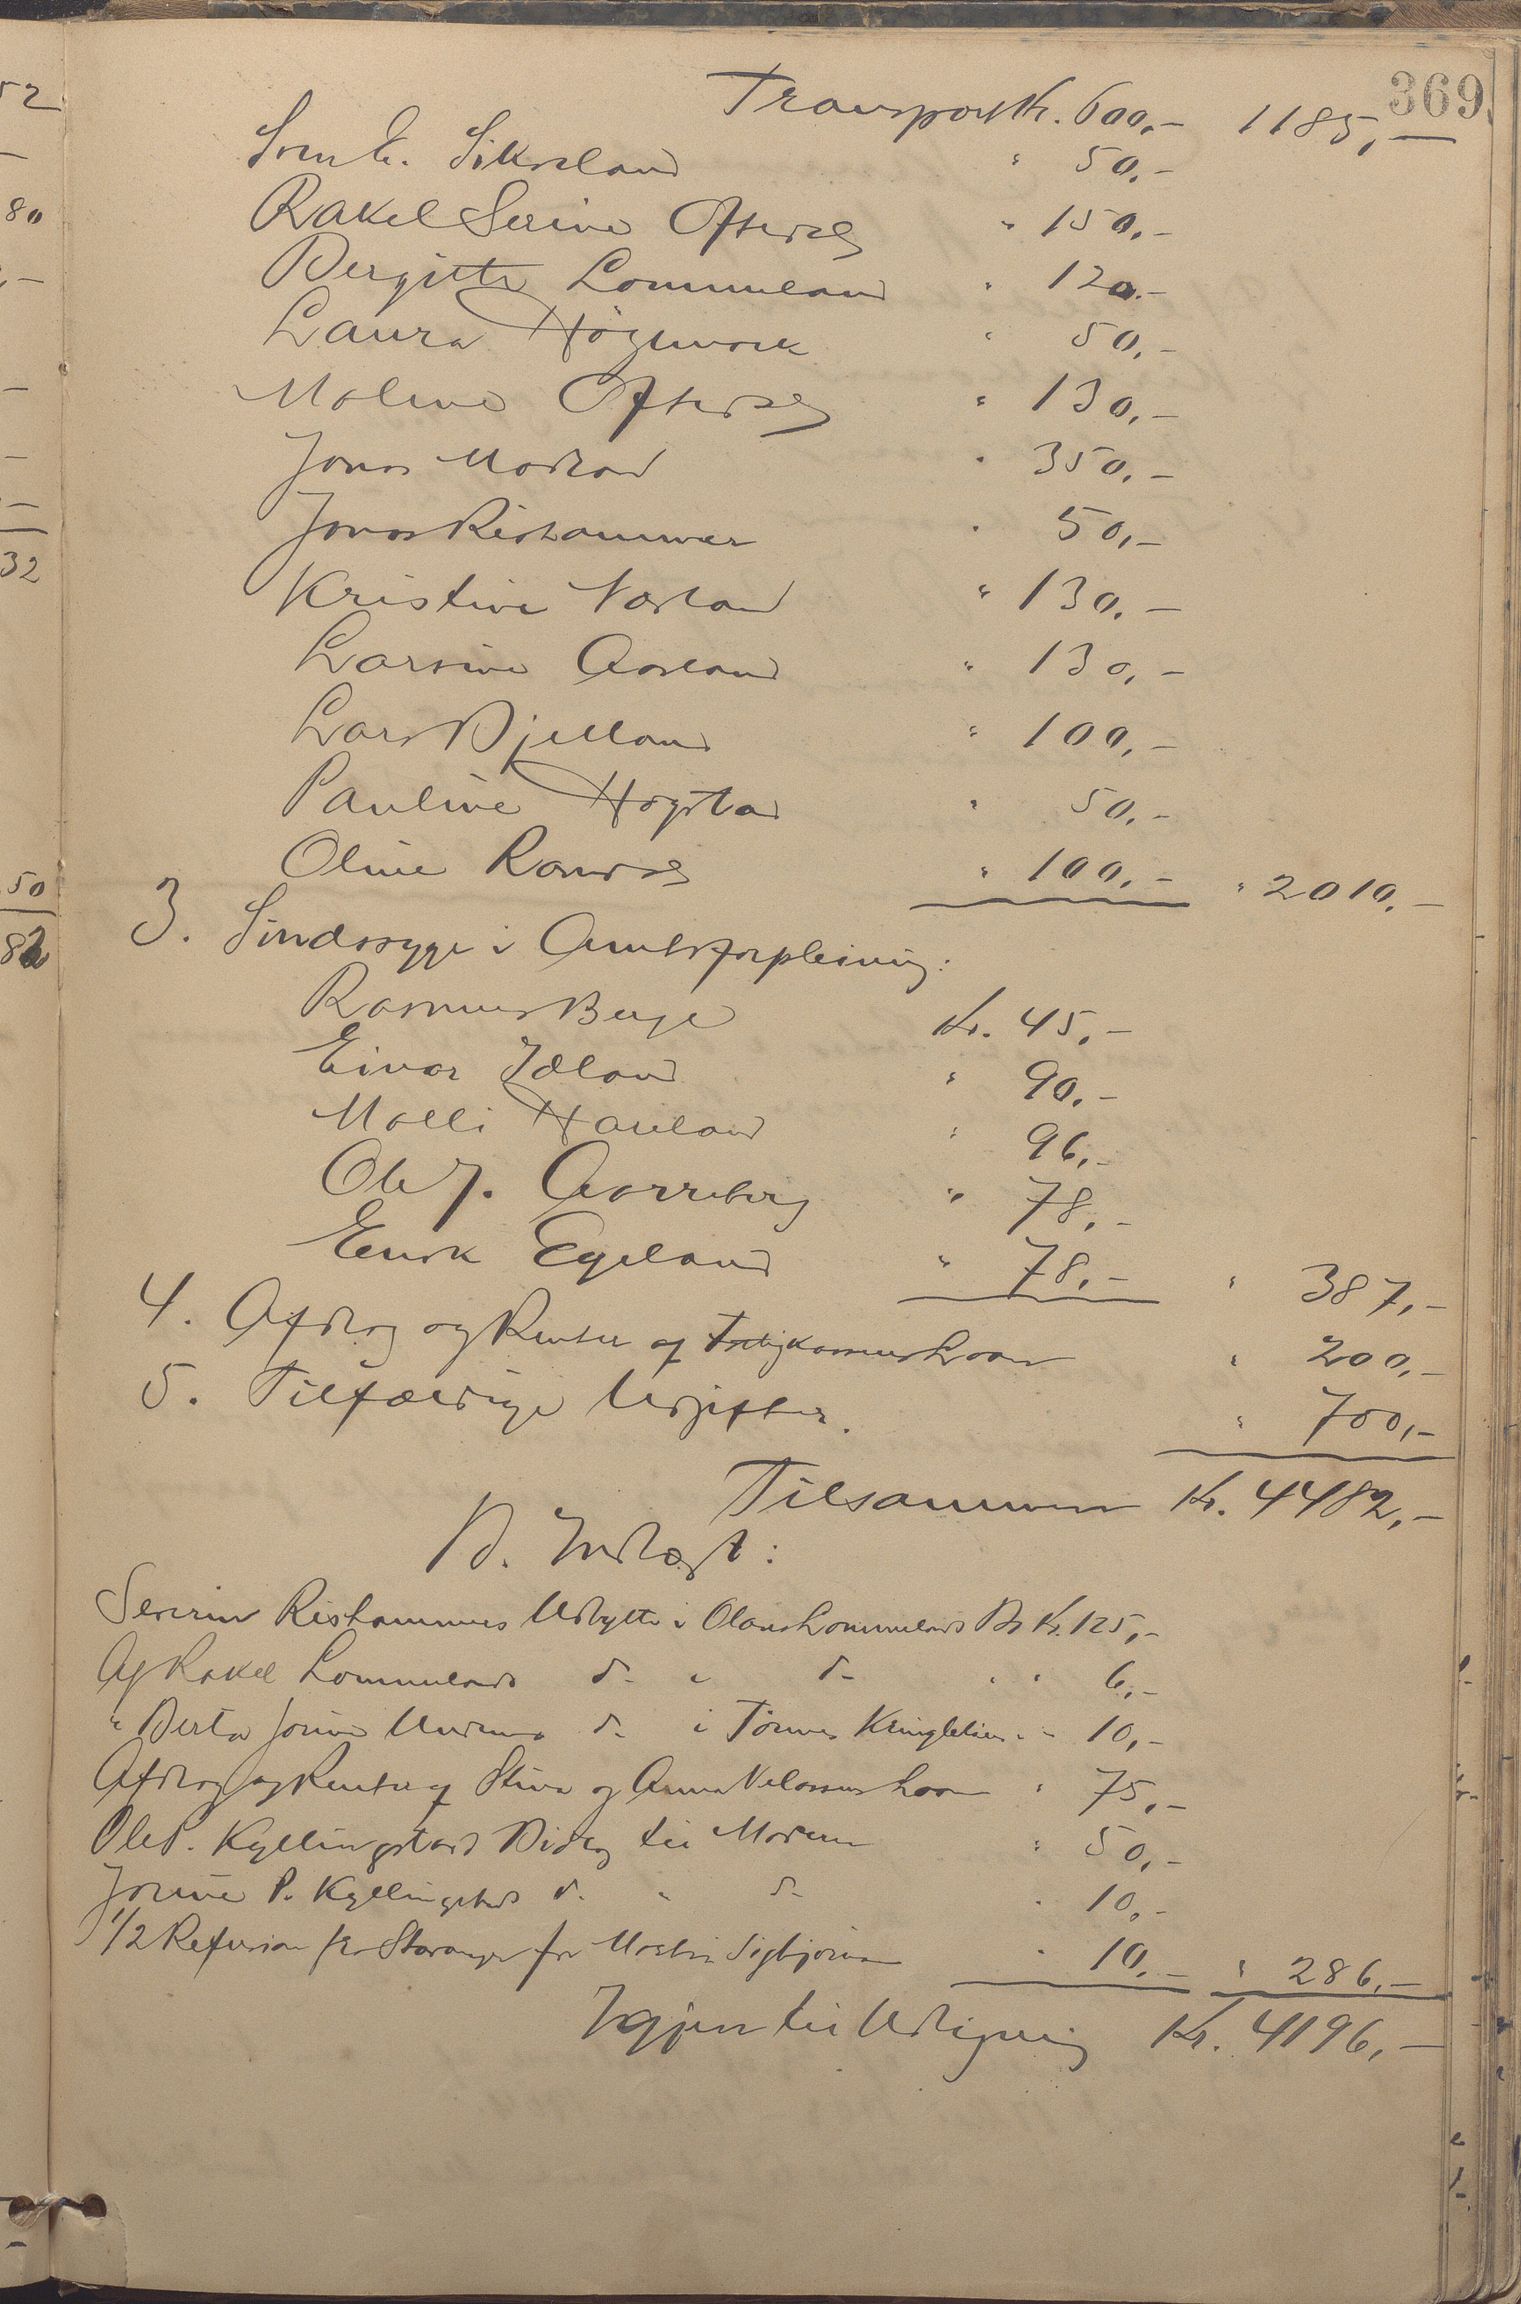 369.
Transport Kr. 600,- 1185,-
Sven E. Sikveland " 50,-
Rakel Serine Oftedal " 150,-
Bergitte Lommeland " 120.-
Laura Högemork " 50,-
Malene Oftedal " 130,-
Jonas Madland " 350,-
Jonas Rishammer " 50,-
Kristine Nærland " 130,-
Larsine Aasland " 130,-
Lars Bjelland " 100,-
Pauline Høgstad " 50,-
Oline Ramdal " 100,- " 2010,-
3. Sindssyge i Amtsforpleining:
Rasmus Berge Kr. 45,-
Einar Idland " 90,-
Malli Haaland " 96,-
Ole J. Aarreberg " 78,-
Enok Egeland " 78,- " 387,-
4. Afdrag og Renter af Fattigkassens Laan " 200,-
5. Tilfældige Udgifter. " 700,-
Tilsammen Kr. 4482,-
B. Indtægt:
Severin Rishammers Udbytte i Olaus Lommelands Bo Kr. 125,-
Af Rakel Lommelands do " do " " 6,-
" Berta Jorine do i Tønnes " " 10,-
Afdrag og Renter af Stine og Anna Laan " 75,-
Ole P. Kyllingstads Bidrag til Moderen " 50,-
Jorine P. Kyllingstads do " do " 10,-
1/2 Refusion fra Stavanger for Sigbjørnsen " 10,- " 286,-
Igjen til Udligning Kr. 4196,-
52
80
32
50
82